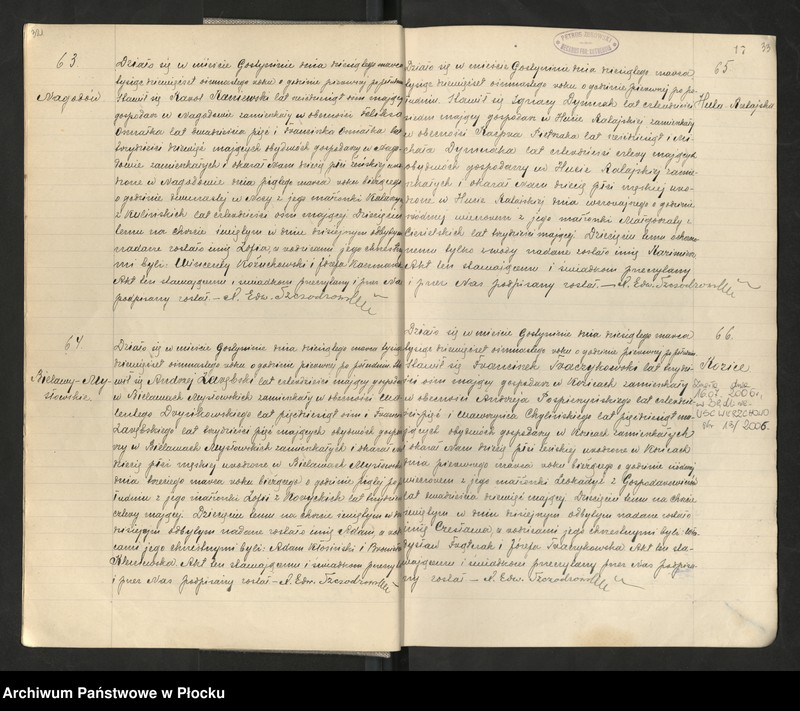 321
63
Nagodów
Działo się w mieście Gostyninie dnia dziesiątego marca
tysiąc dziewięćset ósmnastego roku o godzinie pierwszej po południu
Stawił się Karol Kaniewski lat sześćdziesiąt ośm mający
gospodarz w Nagodowie zamieszkały w obecności Feliksa
Osmałka lat dwadzieścia pięć i Franciszka Osmałka lat
trzydzieści dziewięć mających obydwóch gospodarzy w Nago-
dowie zamieszkałych i okazał Nam dziecię płci żeńskiej uro-
dzone w Nagodowie dnia piątego marca roku bieżącego
o godzinie dwunastej w Nocy z jego małżonki Katarzyny
z Kulińskich lat czterdzieści ośm mającej Dziecięciu
temu na chrzcie świętym w dniu dzisiejszym odbytym
nadane zostało imię Zofia, a rodzicami jego chrzestne-
mi byli: Wincenty Koźuchowski i Józefa Kaczmarek
Akt ten stawającemu i świadkom przeczytany i przez Nas
podpisany został. — X. Edw. Szczodrowski
64
Bielawy-My-
słowskie
Działo się w mieście Gostyninie dnia dziesiątego marca tysiąc
dziewięćset ósmnastego roku o godzinie pierwszej po południu Sta-
wił się Andrzej lat czterdzieści mający gospodarz
w Bielawach Mysłowskich zamieszkały w obecności
lat pięćdziesiąt ośm i
lat trzydzieści pięć mających obydwóch gospoda-
rzy w Bielawach Mysłowskich zamieszkałych i okazał Nam
dziecię płci męskiej urodzone w Bielawach Mysłowskich
dnia trzeciego marca roku bieżącego o godzinie piątej po po-
łudniu z jego małżonki Zofji z Nowyckich lat trzydzieści
cztery mającej. Dziecięciu temu na chrzcie świętym w dniu
dzisiejszym odbytym nadane zostało imię Adam, a rodzi-
cami jego chrzestnymi byli: Adam Kłosiński i Bronisława
Akt ten stawającemu i świadkom przeczytany
i przez Nas podpisany został — X. Edw. Szczodrowski
17
33
65
Huta-Ratajska
Działo się w mieście Gostyninie dnia dziesiątego marca
tysiąc dziewięćset ósmnastego roku o godzinie pierwszej po po-
łudniu. Stawił się Ignacy Dymczak lat czterdzieści
siedm mający gospodarz w Hucie Ratajskiej zamieszkały
w obecności Kacpra Pietrzaka lat sześćdziesiąt i Mi-
chała Dymczaka lat czterdzieści cztery mających
obydwóch gospodarzy w Hucie Ratajskiej zamie-
szkałych i okazał Nam dziecię płci męskiej uro-
dzone w Hucie Ratajskiej dnia wczorajszego o godzinie
siódmej wieczorem z jego małżonki Małgorzaty z
Ciesielskich lat trzydzieści mającej. Dziecięciu temu ochrzczo-
nemu tylko z wody nadane zostało imię Kazimierz.
Akt ten stawającemu i świadkom przeczytany
i przez Nas podpisany został. — X. Edw. Szczodrowski
66.
Kozice
Działo się w mieście Gostyninie dnia dziesiątego marca
tysiąc dziewięćset ósmnastego roku o godzinie pierwszej po południu
Stawił się Franciszek Tkaczykowski lat trzydzie-
ści ośm mający gospodarz w Kozicach zamieszkały
w obecności Andrzeja Pospieszyńskiego lat czterdzie-
ści pięć i Wawrzyńca Chylińskiego lat pięćdziesiąt ma-
jących obydwóch gospodarzy w Kozicach zamieszkałych
i okazał Nam dziecię płci żeńskiej urodzone w Kozicach
dnia pierwszego marca roku bieżącego o godzinie siódmej
wieczorem z jego małżonki Leokadyi z Gospodarowiczów
lat dwadzieścia dziewięć mającej. Dziecięciu temu na chrzcie
świętym w dniu dzisiejszym odbytym nadane zostało
imię Czesława, a rodzicami jego chrzestnymi byli: Wła-
dysław i Józefa Tkaczykowska Akt ten sta-
wającemu i świadkom przeczytany przez Nas podpisa-
ny został — X. Edw. Szczodrowski
dnia
16.07.2006r.
USC WIERZCHOWO
Nr 13/2006.
Archiwum Państwowe w Płocku